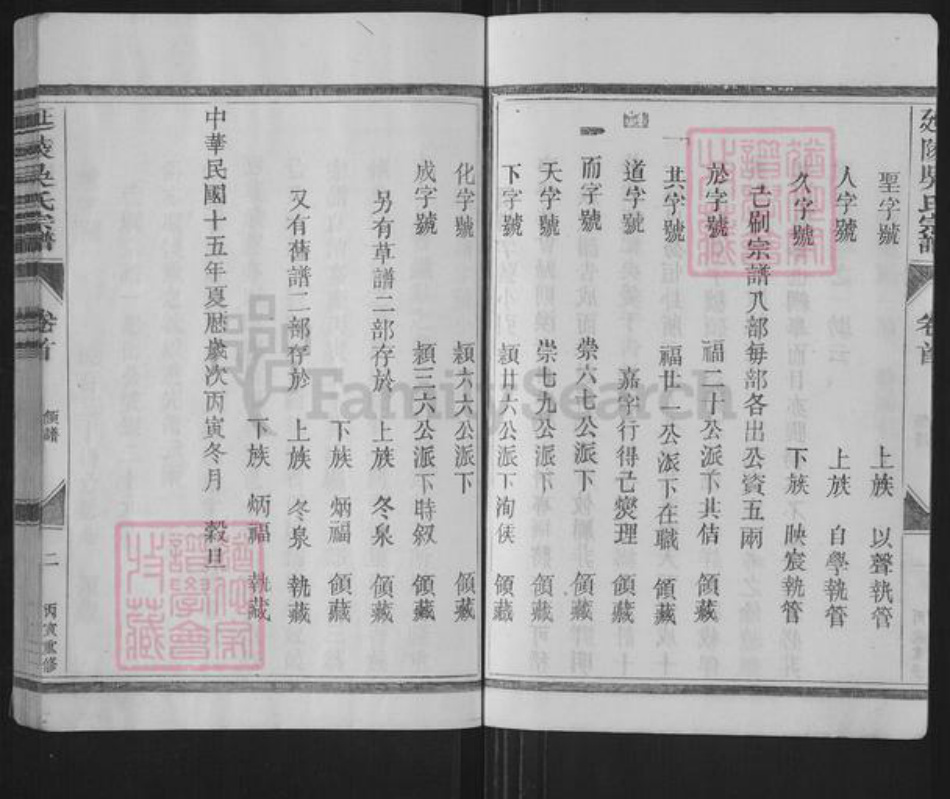 延陵吳氏宗譜 卷首
聖字號 上族 以聲執管
人字號 上族 自學執管
久字號 下族 映宸執管
已刷宗譜八部每部各出公資五兩
於字號 福二十公派下其佶 領藏
其字號 福廿一公派下在職 領藏
道字號 嘉字行得己燮理 領藏
而字號 崇六七公派下 領藏
天字號 崇七九公派下 領藏
下字號 穎廿六公派下洵侯 領藏
化字號 穎六六公派下 領藏
成字號 穎三六公派下時叙 領藏
另有草譜二部存於 上族 冬泉 領藏
下族 炳福 領藏
又有舊譜二部存於 上族 冬泉 執藏
下族 炳福 執藏
中華民國十五年夏厯歲次丙寅冬月 穀旦
延陵吳氏宗譜 卷首 領譜 二 丙寅重修
FamilySearch